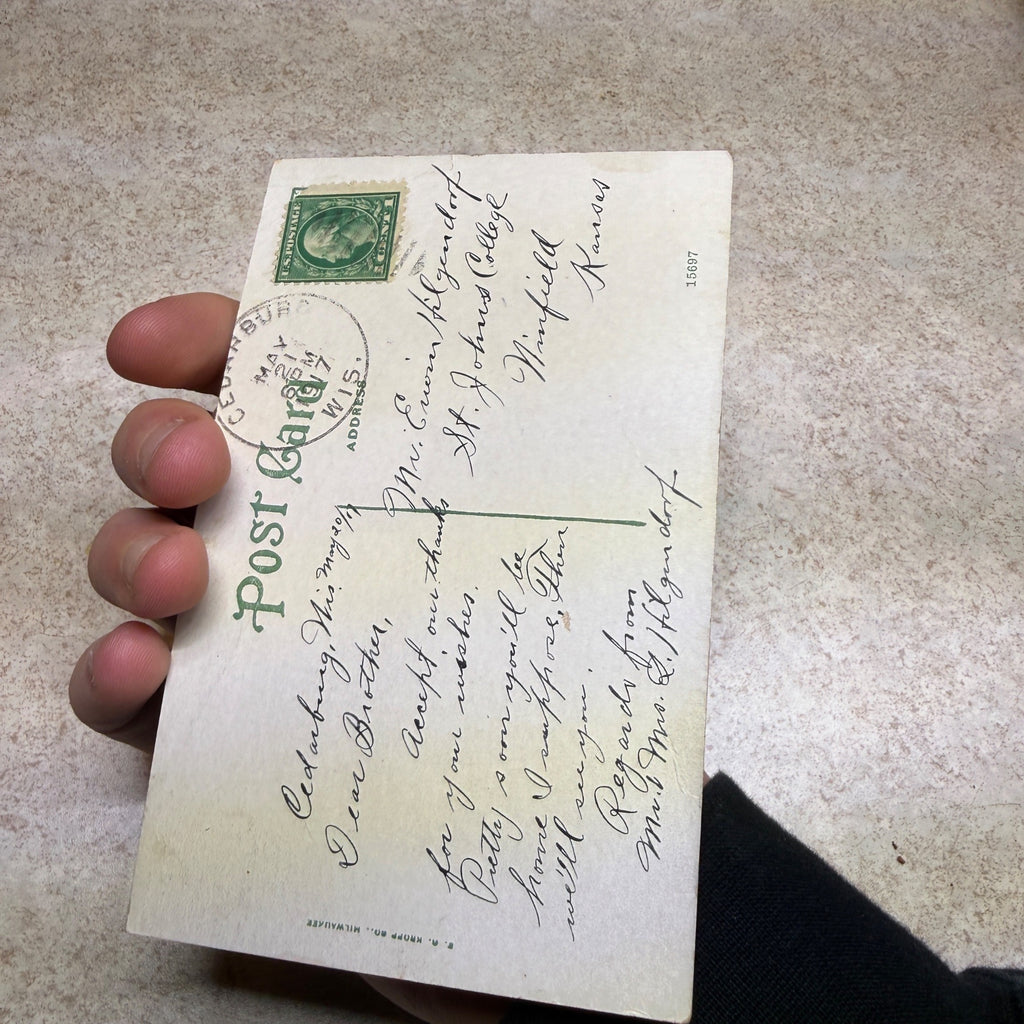 Post Card
ADDRESS
U.S. POSTAGE
1 CENT 1
CEDARBURG
MAY
21
8 PM
1917
WIS.
Cedarburg, Wis. May 20/17
Dear Brother,
Accept our thanks
for your wishes.
Pretty soon you'll be
home I suppose, Then
we'll see you.
Regards from
Mr. & Mrs. G. Hilgendorf.
Mr. Erwin Hilgendorf
St. Johns College
Winfield
Kansas
15697
E. A. KROPP CO., MILWAUKEE